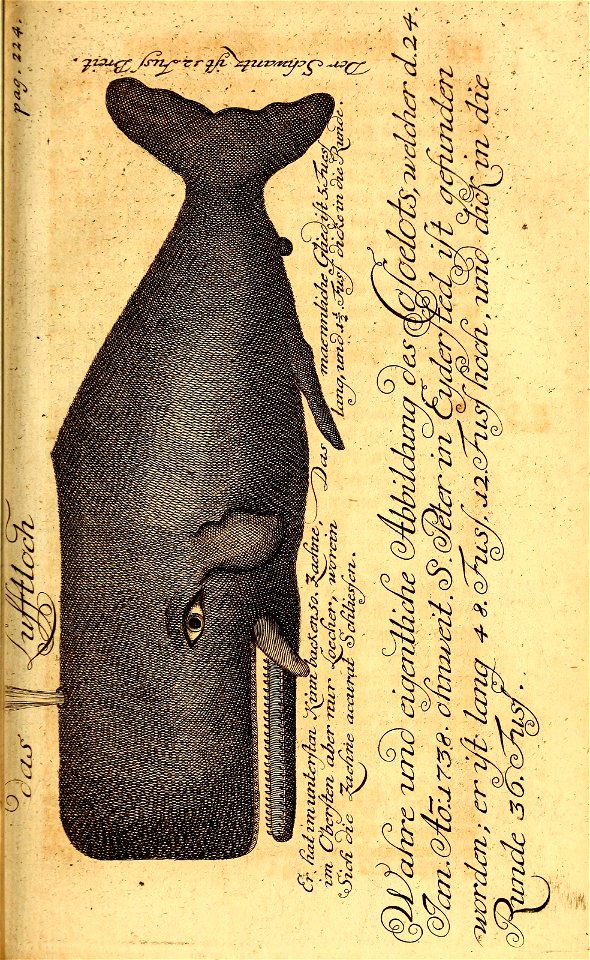 pag. 224.
Der Schwantz ist 12 Fuss Breit.
das Lufftloch
Er hat im untersten Kinnbacken 50. Zaehne,
im Obersten aber nur Loecher, worein
Sich die Zaehne accurat Schliessen.
Das maennliche Glied ist 3. Fuess
lang, und 1½ Fuss dicke in die Runde.
Wahre und eigentliche Abbildung des Casselots, welcher d. 24.
Jan. Aō. 1738. ohnweit. S. Peter in Eydersted ist gefunden
worden; er ist lang 48. Fuss. 12. Fuss hoch, und dick in die
Runde 36. Fuss.